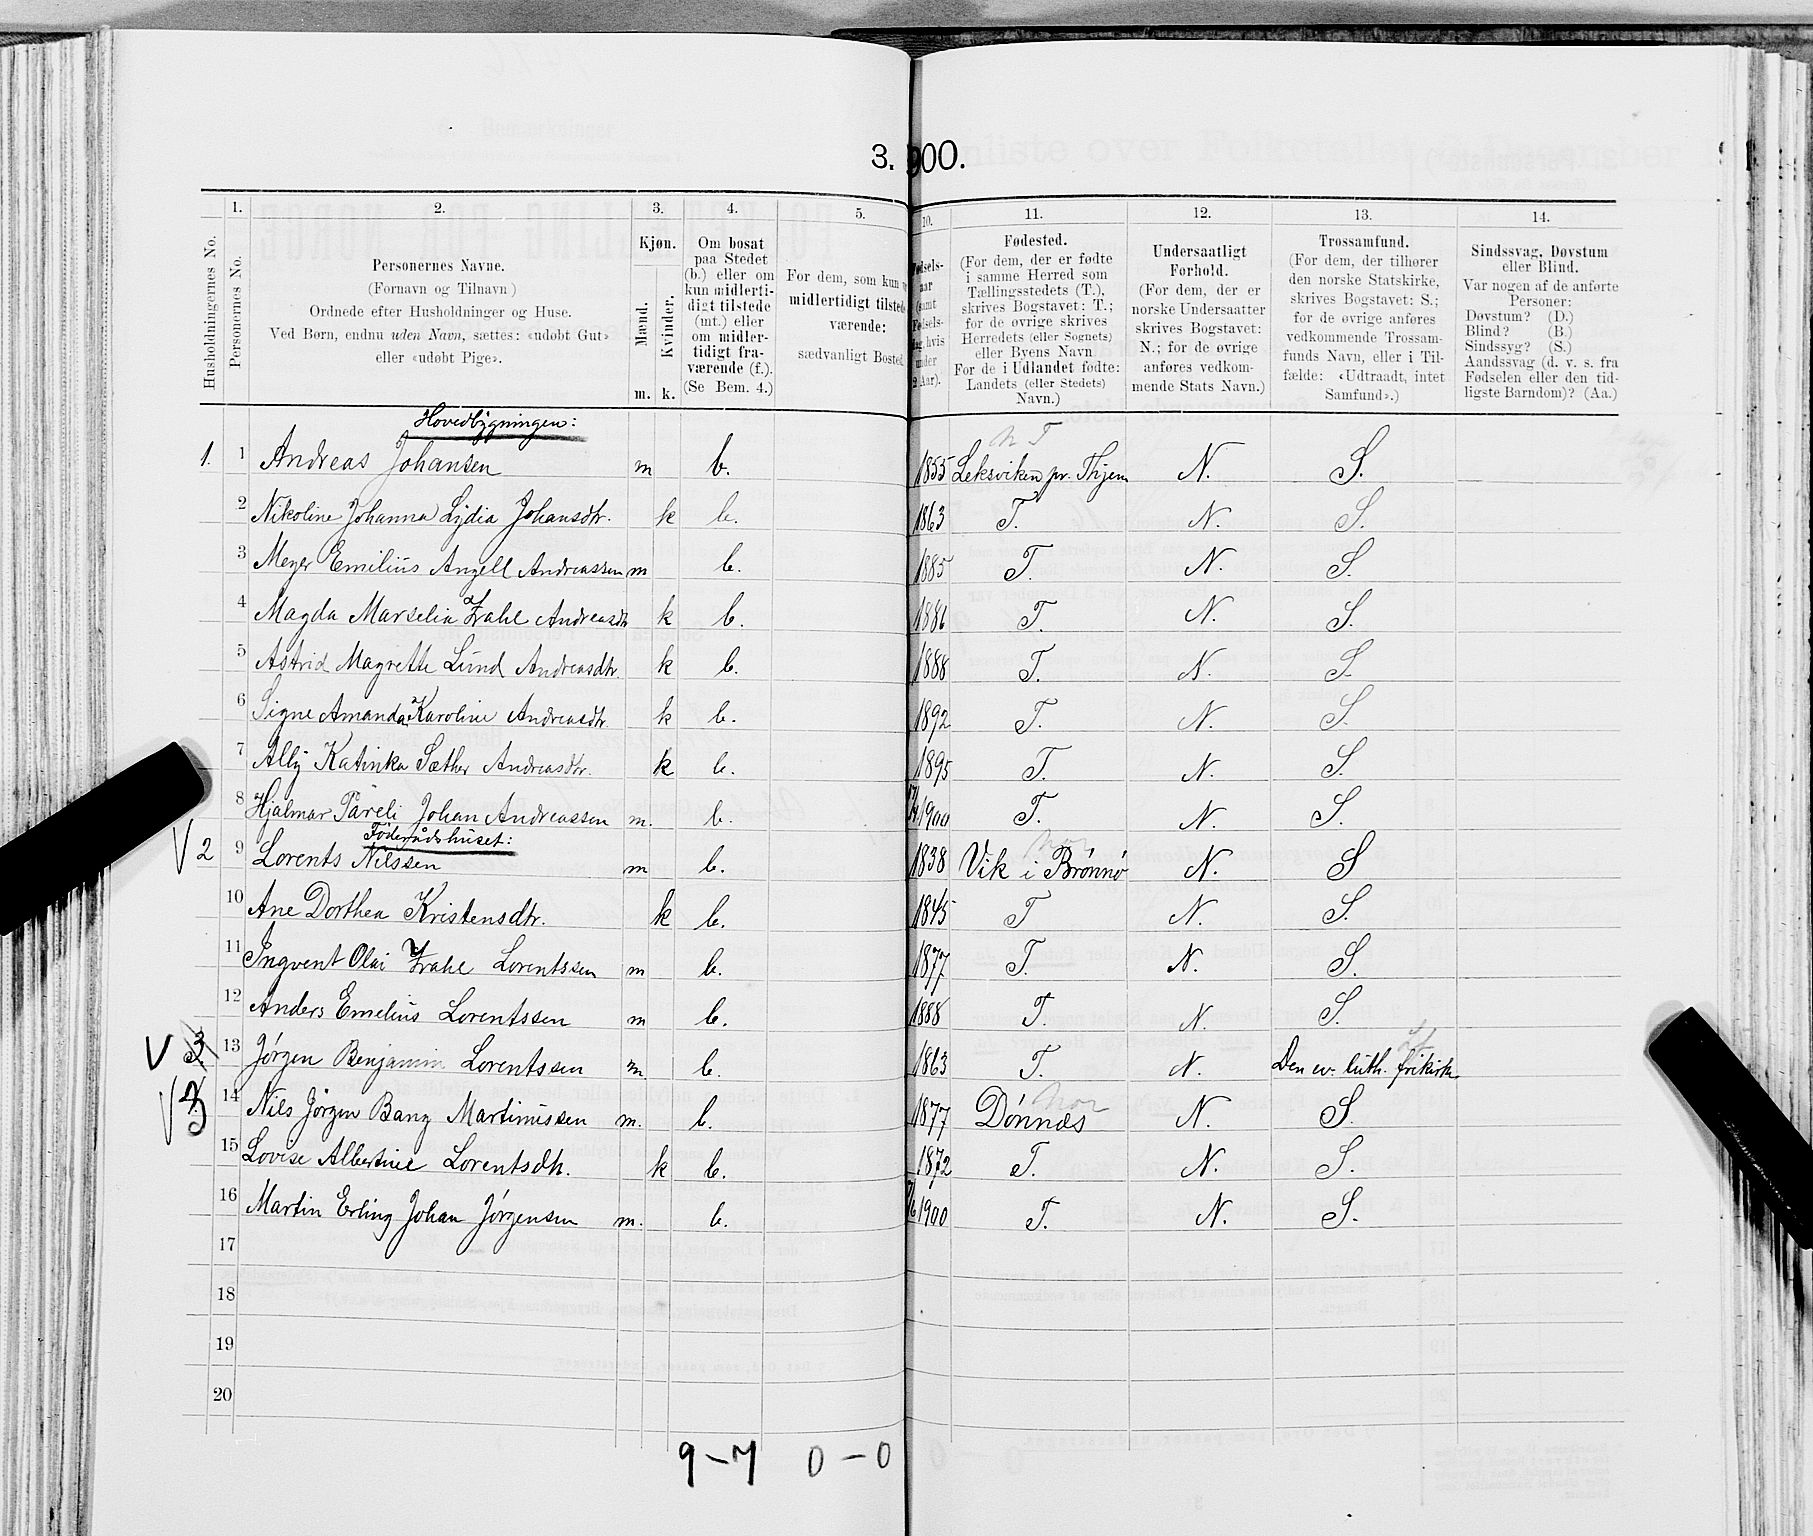 3. 900.
1. 2. 3. 4. 5. 10. 11. 12. 13. 14.
Husholdningernes No.
Personernes No.
Personernes Navne.
(Fornavn og Tilnavn)
Ordnede efter Husholdninger og Huse.
Ved Børn, endnu uden Navn, sættes: «udøbt Gut»
eller «udøbt Pige».
Kjøn.
Mænd.
Kvinder.
m. k.
Om bosat
paa Stedet
(b.) eller om
kun midlerti-
digt tilstede
(mt.) eller
om midler-
tidigt fra-
værende (f.).
(Se Bem. 4.)
For dem, som kun
midlertidigt tilstede-
værende:
sædvanligt Bosted.
Fødsels-
aar
(samt
Fødsels-
dag, hvis
under
2 Aar).
Fødested.
(For dem, der er fødte
i samme Herred som
Tællingsstedets (T.),
skrives Bogstavet: T.;
for de øvrige skrives
Herredets (eller Sognets)
eller Byens Navn
For de i Udlandet fødte:
Landets (eller Stedets)
Navn.)
Undersaatligt
Forhold.
(For dem, der er
norske Undersaatter
skrives Bogstavet:
N.; for de øvrige
anføres vedkom-
mende Stats Navn.)
Trossamfund.
(For dem, der tilhører
den norske Statskirke,
skrives Bogstavet: S.;
for de øvrige anføres
vedkommende Trossam-
funds Navn, eller i Til-
fælde: «Udtraadt, intet
Samfund».)
Sindssvag, Døvstum
eller Blind.
Var nogen af de anførte
Personer:
Døvstum? (D.)
Blind? (B.)
Sindssyg? (S.)
Aandssvag (d. v. s. fra
Fødselen eller den tid-
ligste Barndom)? (Aa.)
Hovedbygningen:
N T
1. 1 Andreas Johansen m b. 1855 Leksviken pr. Thjem N. S.
2 Nikoline Johanna Lydia Johansdtr. k b. 1863 T. N. S.
3 Meyer Emilius Angell Andreassen m b. 1885 T. N. S.
4 Magda Marselia Zahl Andreasdtr k b. 1886 T. N. S.
5 Astrid Magrette Lund Andreasdtr. k b. 1888 T. N. S.
6 Signe Amanda Karoline Andreasdtr. k b. 1892 T. N. S.
7 Alby Katinka Sæther Andreasdtr. k b. 1895 T. N. S.
8 Hjalmar Pareli Johan Andreassen m. b. 1900 T. N. S.
Føderådshuset:
Nor
V 2 9 Lorents Nilssen m b. 1838 Vik i Brønnø N. S
10 Ane Dorthea Kristensdtr. k b. 1845 T N. S.
11 Ingvent Olai Zahl Lorentssen m b. 1877 T. N. S.
12 Anders Emelius Lorentssen m b. 1888 T. N. S.
V 3 13 Jørgen Benjamin Lorentssen m. b. 1863 T. N. Den ev. luth. frikirke
Nor
V 3 14 Nils Jørgen Bang Martinussen m. b. 1877 Dønnæs N. S.
15 Lovise Albertine Lorentsdtr. k b. 1872 T. N. S.
16 Martin Erling Johan Jørgensen m. b. 1900 T. N. S.
17
18
19
20
9-7 0-0